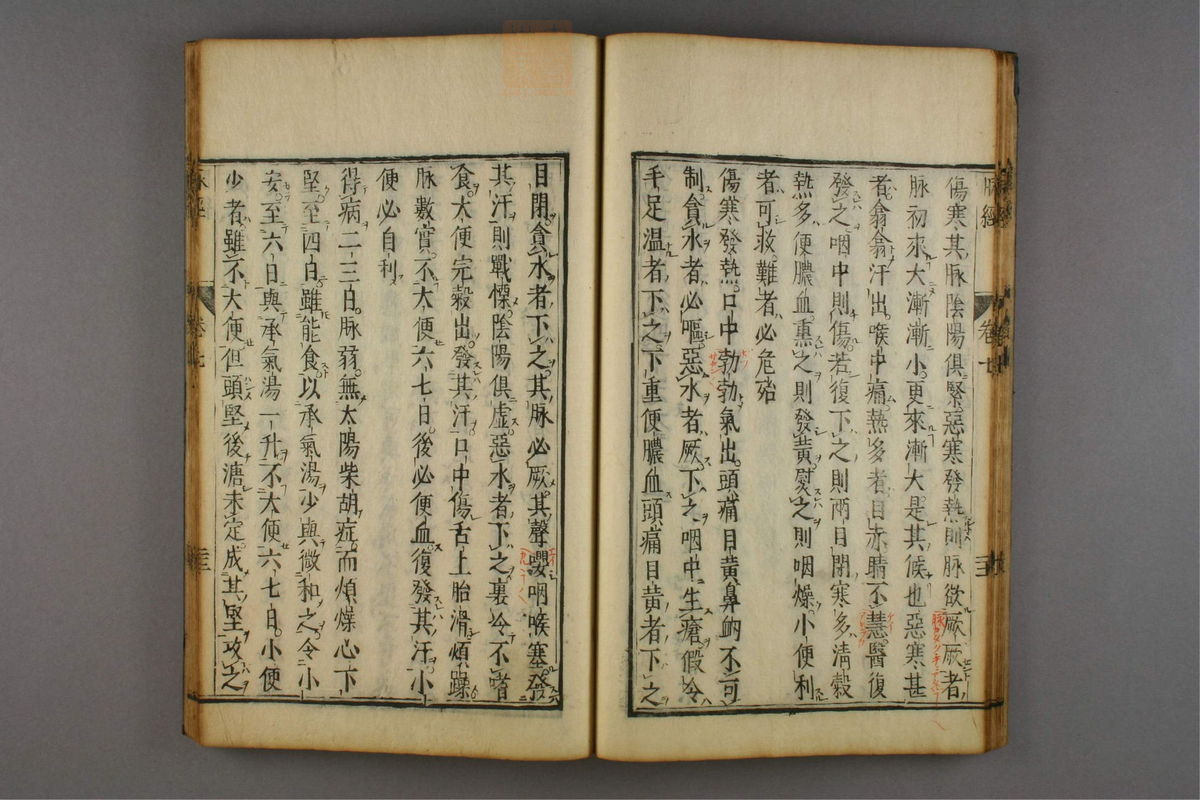 傷寒其脉陰陽俱緊惡寒發熱則脉欲厥厥者
脉初來大漸漸小更來漸大是其候也惡寒甚
者翁翁汗出喉中痛熱多者目赤睛不慧醫復
發之咽中則傷若復下之則兩目閉寒多清穀
熱多便膿血熏之則發黄熨之則咽燥小便利
者可救難者必危殆
傷寒發熱口中勃勃氣出頭痛目黄鼻衂不可
制貪水者必嘔惡水者厥下之咽中生瘡假令
手足温者下之下重便膿血頭痛目黄者下之
目閉貪水者下之其脉必厥其聲嚶咽喉塞發
其汗則戰慄陰陽俱虚惡水者下之裏冷不嗜
食大便完穀出發其汗口中傷舌上胎滑煩躁
脉數實不大便六七日後必便血復發其汗小
便必自利
得病二三日脉弱無太陽柴胡症而煩燥心下
堅至四日雖能食以承氣湯少與微和之令小
安至六日與承氣湯一升不大便六七日小便
少者雖不大便但頭堅後溏未定成其堅攻之
脉經
卷七